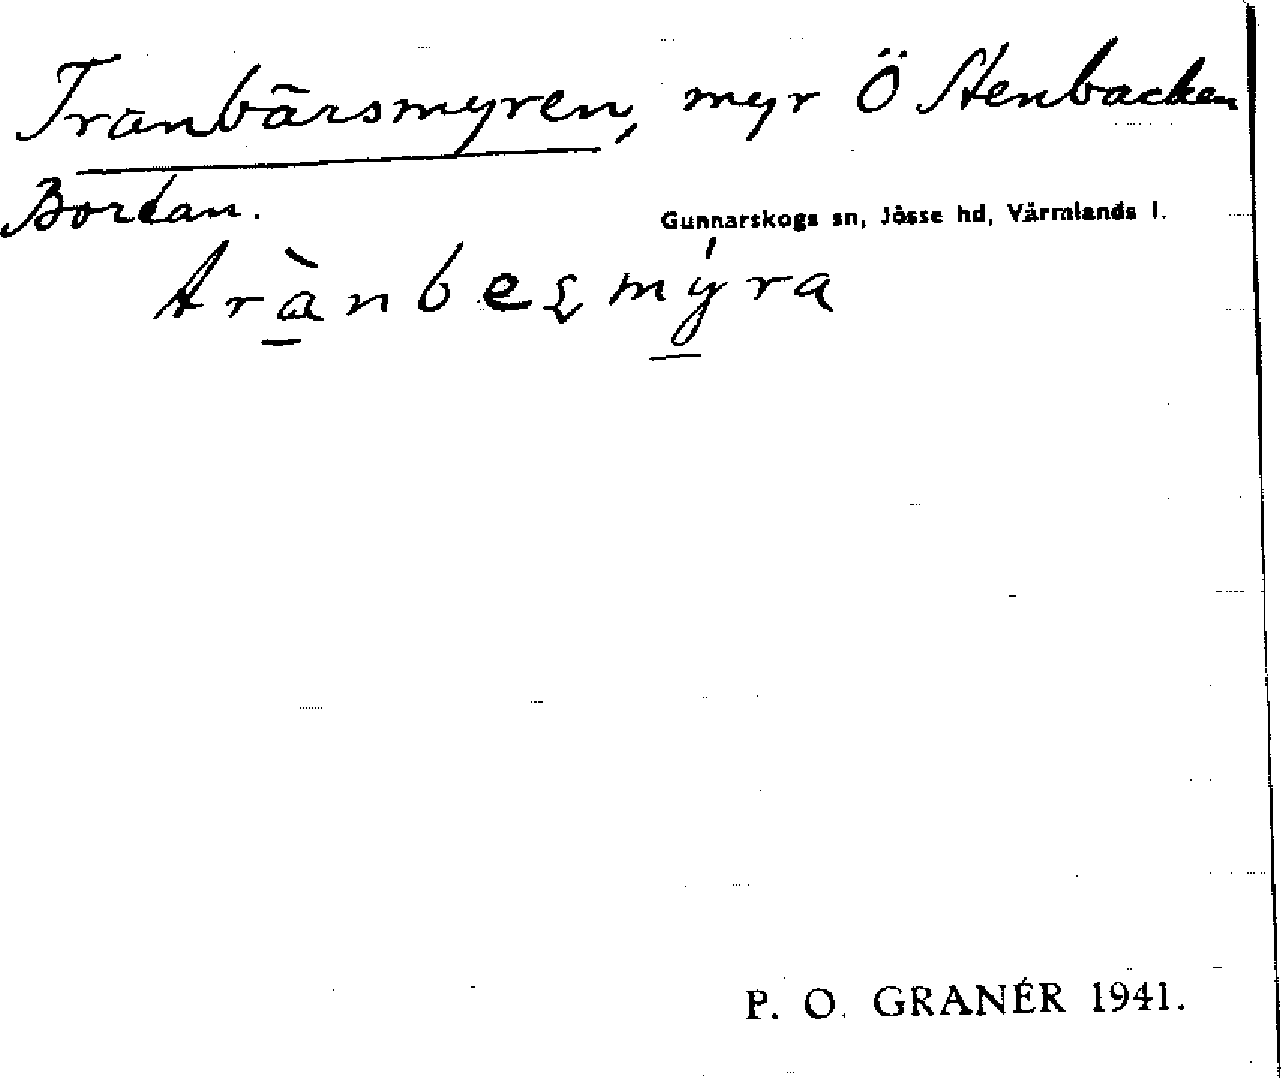 Tranbärsmyren, myr Ö Stenbacken
Bortan.
Gunnarskogs sn, Jösse hd, Värmlands l.
trànbeʂmýra
P. O. GRANÉR 1941.